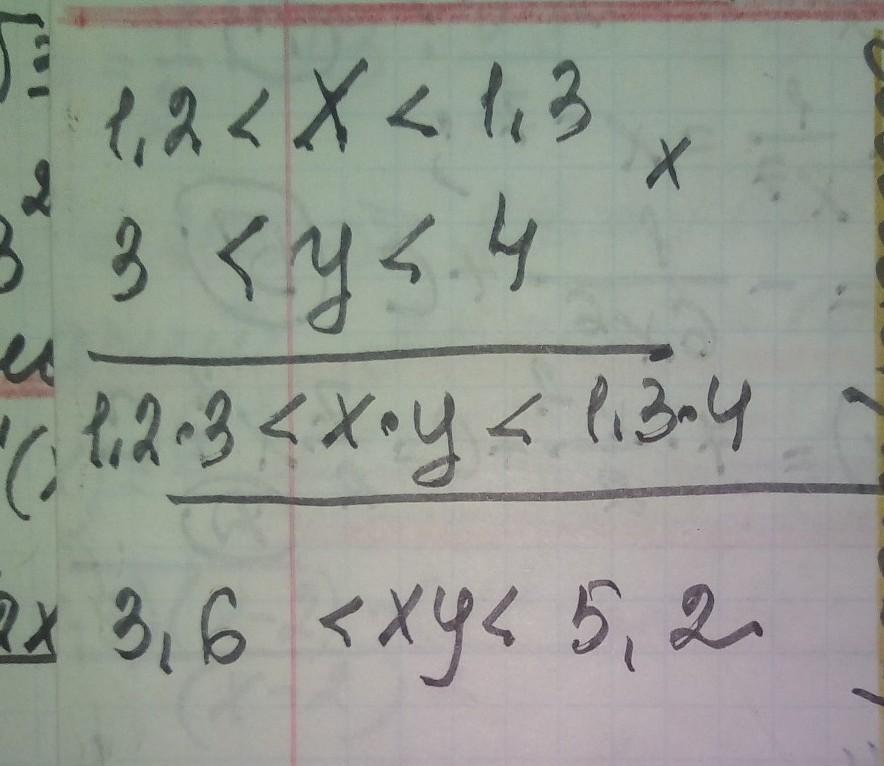 1,2 < x < 1,3
x
3 < y < 4
1,2·3 < x·y < 1,3·4
3,6 < xy < 5,2